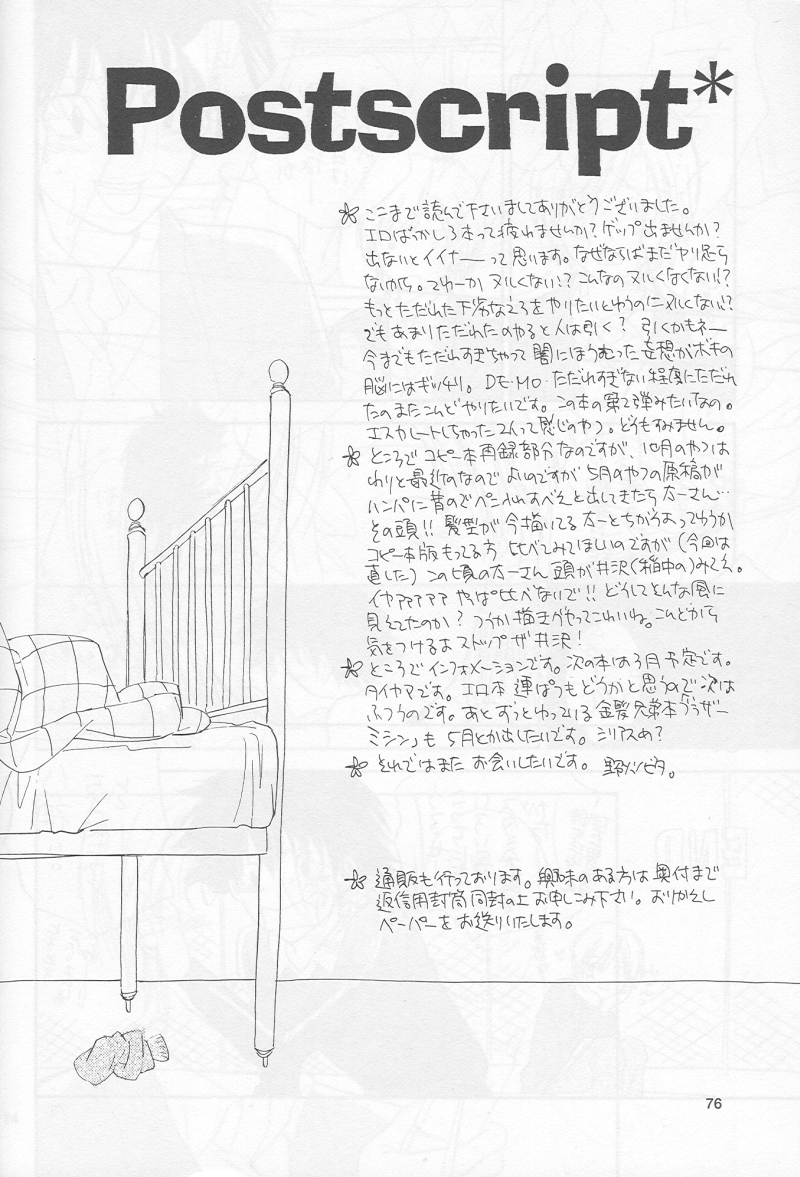 Postscript*
ここまで読んで下さいましてありがとうございました。
エロばっかしろ本って疲れませんか？ゲップ出ませんか？
出ないとイイナーーって思います。なぜならばまだヤり足ら
ないから。てわーか ヌルくない!? こんなの ヌルくなくない!?
もっとただれた下劣なえろをやりたいとゆうのに ヌルくない!?
でもあまりただれたのやると人は引く？ 引くかもネー
今までもただれすぎちゃって 闇にほうむった妄想がボキの
脳にはギッチリ。 DE・MO・ただれすぎない程度にただれ
たのまたこんどやりたいです。この本の第2弾みたいなの。
エスカレートしちゃった2人って感じのやつ。どうもすみません。
ところで コピー本再録部分なのですが、 月のやつは
わりと最近のなのでよいのですが 5月のやつの原稿が
ハンパに昔ので ひっぱりだすべえと出してきたら 太一さん…
その頭!! 髪型が今描いてる太一とちがうよってゆうか
コピー本版もってる方 比べてみてほしいのですが(今回は
直した) この頃の太一さん 頭が井沢(稲中の)みてえ。
イヤアアアア やっぱ比べないで!! どうしてそんな風に
見えてたのか？ つうか描きグセってこわいね。こんどから
気をつけるよ ストップ ザ 井沢！
ところで インフォメーションです。次の本は3月予定です。
タイヤマです。エロ本 連ぱつもどうかと思うので次は
ふつうのです。あとずっとゆっている金髪兄弟本「ブラザー
ミシン」も 5月とか出したいです。シリアスめ？
それではまた お会いしたいです。 野 ピタ。
通販も行っております。興味のある方は奥付まで
返信用封筒同封の上 お申しこみ下さい。おりかえし
ペーパーをお送りいたします。
76